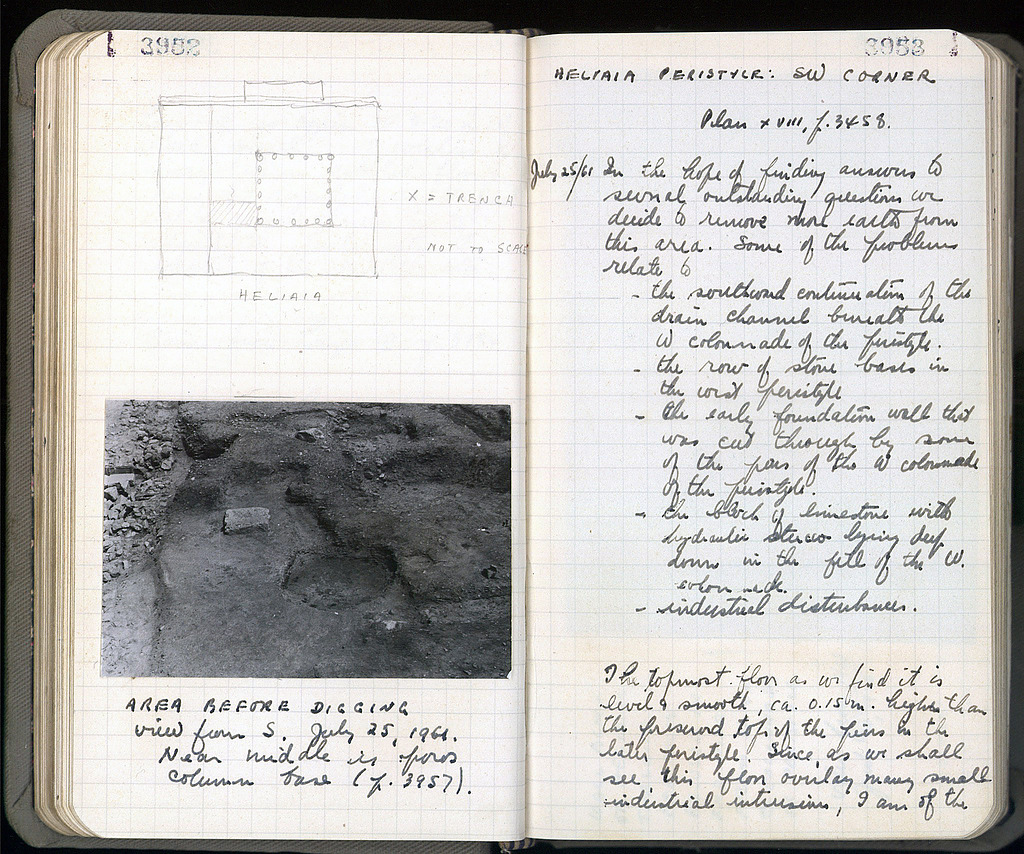 3952
X = TRENCH
NOT TO SCALE
HELIAIA
AREA BEFORE DIGGING
view from S. July 25, 1961.
Near middle is poros
column base (p. 3957).
3953
HELIAIA PERISTYLE: SW CORNER
Plan XVIII, p. 3458.
July 25/61 In the hope of finding answers to
several outstanding questions we
decide to remove more earth from
this area. Some of the problems
relate to
- the southward continuation of the
drain channel beneath the
W colonnade of the peristyle.
- the row of stone bases in
the west peristyle
- the early foundation wall that
was cut through by some
of the piers of the W colonnade
of the peristyle.
- the block of limestone with
hydraulic stucco lying deep
down in the fill of the W.
colonnade.
- industrial disturbances.
The topmost floor as we find it is
level & smooth, ca. 0.15m. higher than
the preserved top of the piers in the
later peristyle. Since, as we shall
see this floor overlay many small
industrial intrusions, I am of the